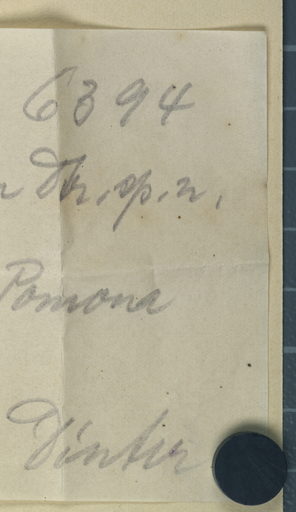 6394
Dtr. sp. n.
Pomona
Dinter